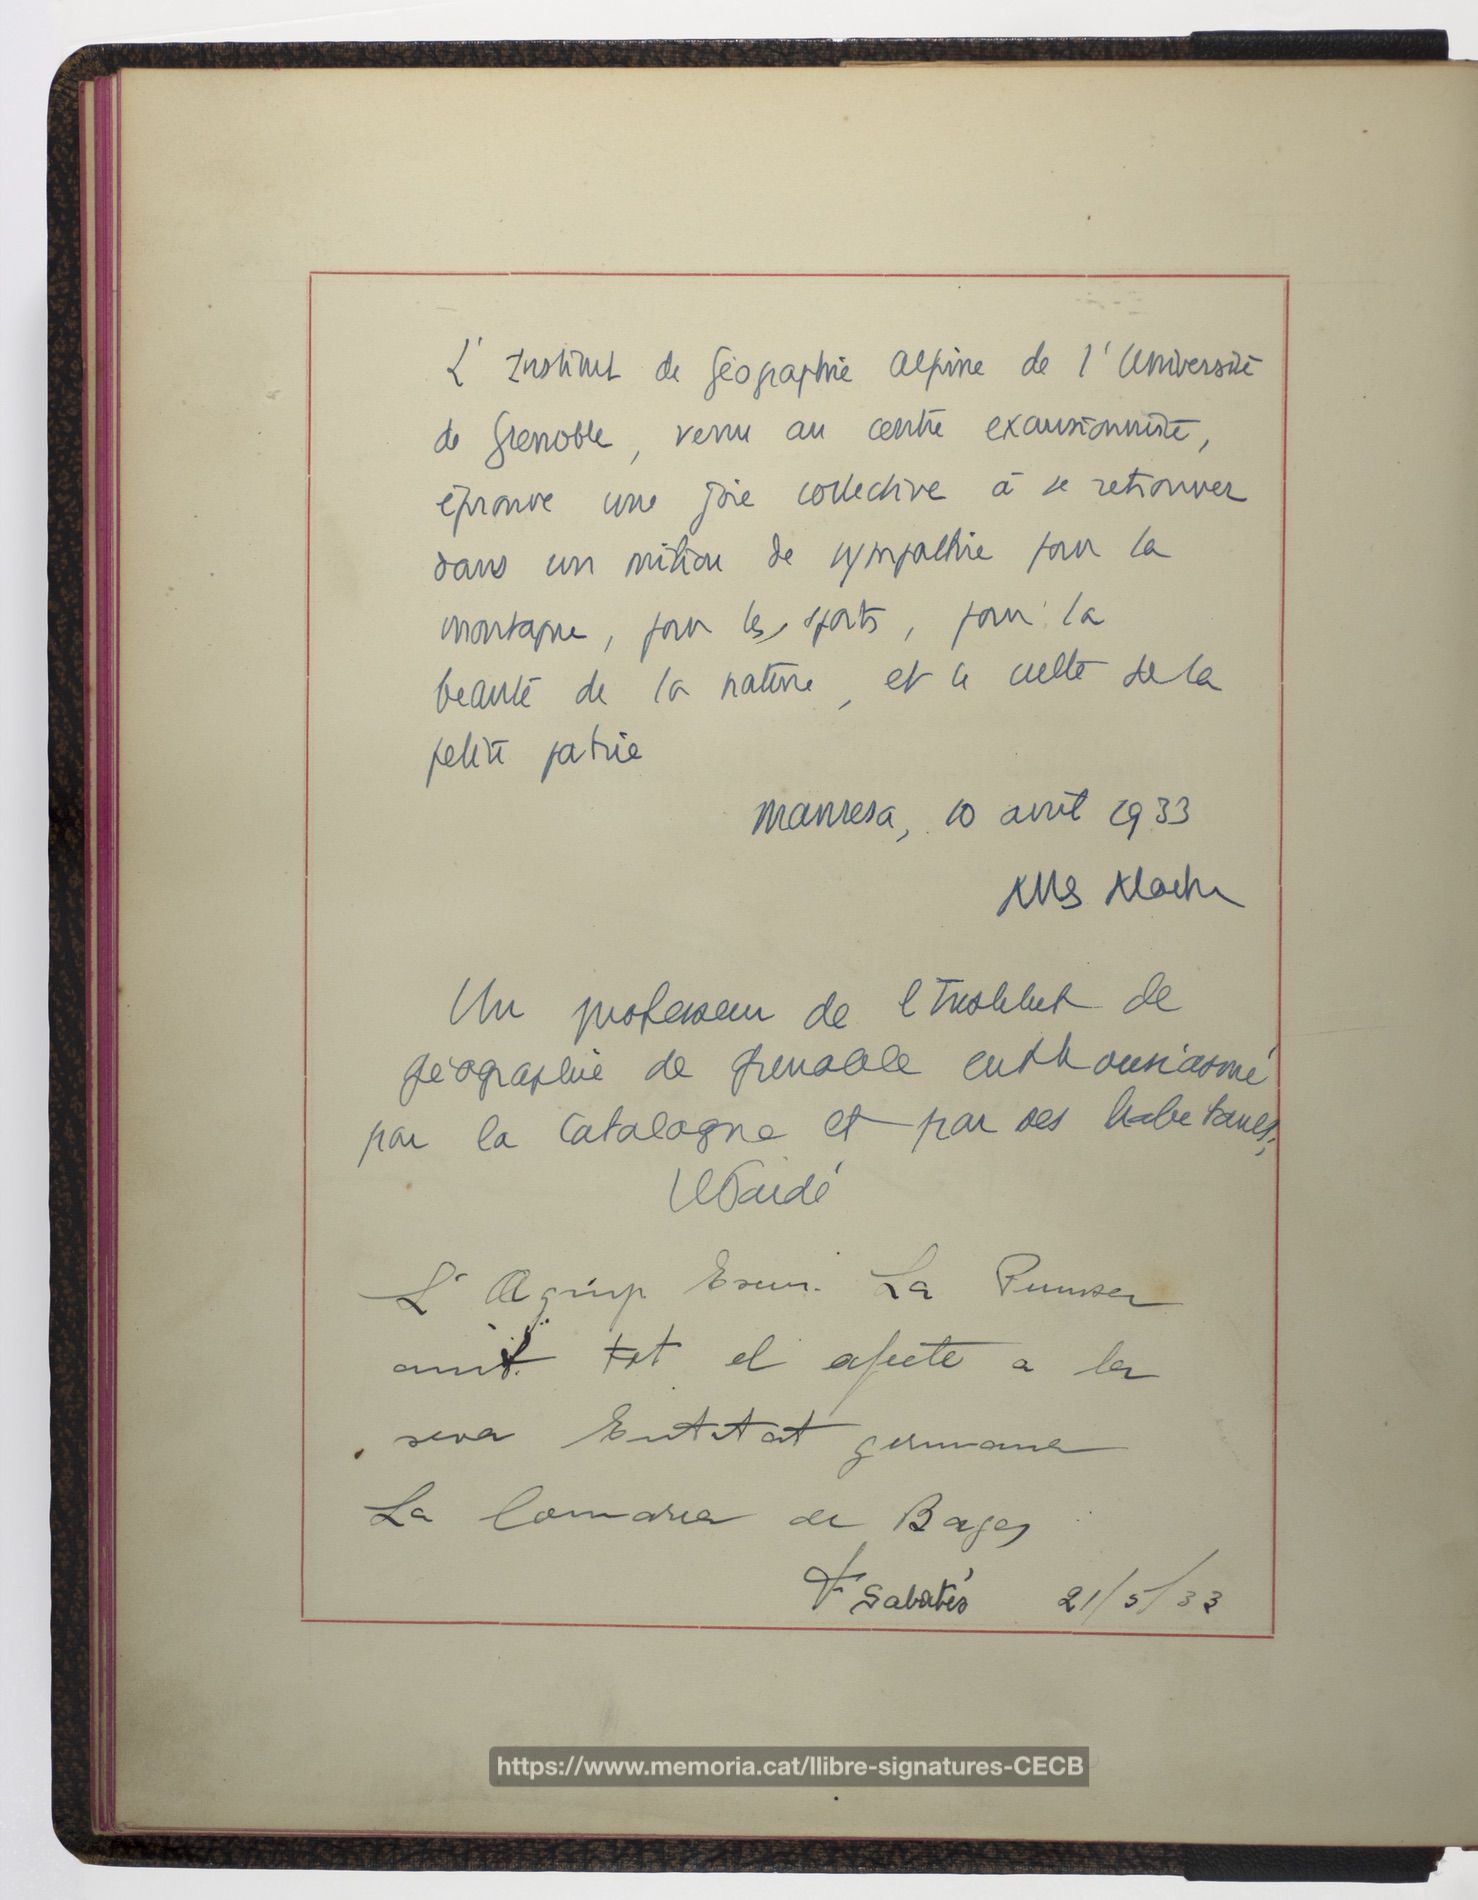 L' Institut de Géographie Alpine de l'Université
de Grenoble, venu au centre excursionniste,
éprouve une joie collective à se retrouver
dans un milieu de sympathie pour la
montagne, pour les sports, pour la
beauté de la nature, et le culte de la
petite patrie
Manresa, 10 avril 1933
Un professeur de l'Institut de
géographie de Grenoble enthousiasmé
par la Catalogne et par ses habitants,
L'Agrup Excur. La
amb tot el afecte a la
seva Entitat germana
La Comarca de Bages
F Sabatés 21/5/33
https://www.memoria.cat/llibre-signatures-CECB